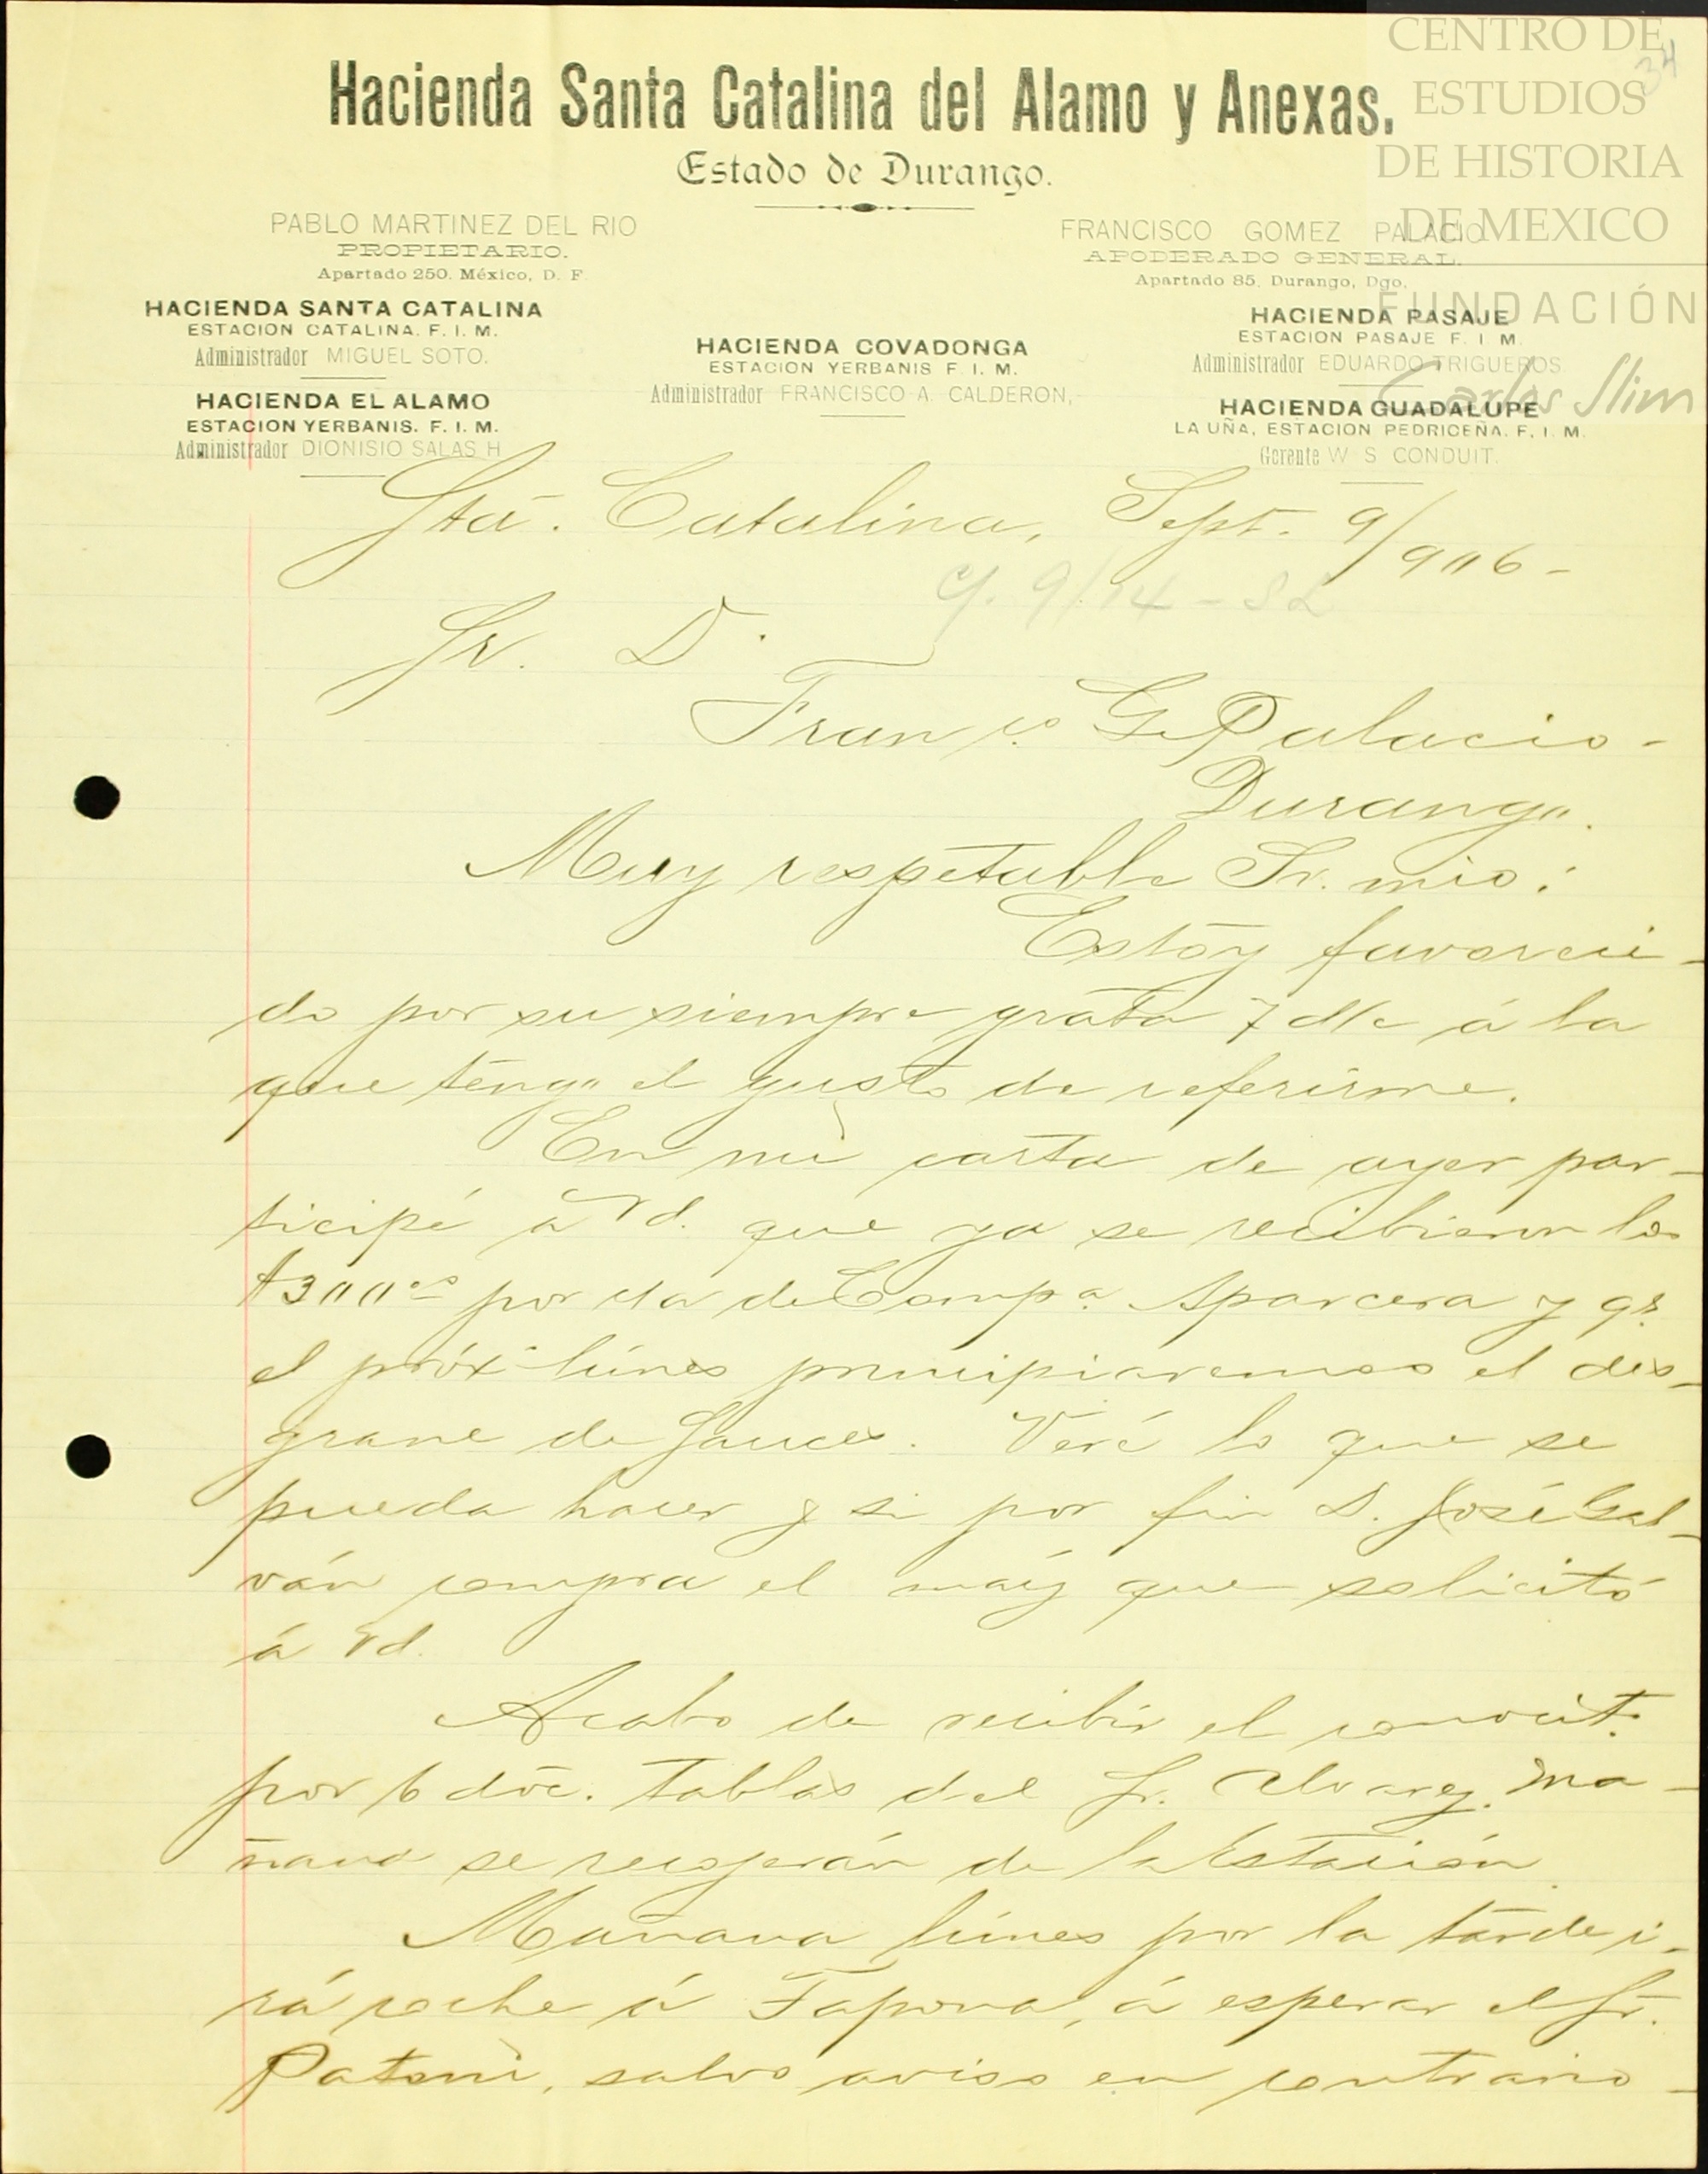 CENTRO DE
ESTUDIOS
DE HISTORIA
DE MEXICO
FUNDACIÓN
Carlos Slim
34
Hacienda Santa Catalina del Alamo y Anexas.
Estado de Durango.
PABLO MARTINEZ DEL RIO
PROPIETARIO.
Apartado 250. México, D. F.
FRANCISCO GOMEZ PALACIO
APODERADO GENERAL.
Apartado 85. Durango, Dgo.
HACIENDA SANTA CATALINA
ESTACION CATALINA. F. I. M.
Administrador MIGUEL SOTO.
HACIENDA EL ALAMO
ESTACION YERBANIS. F. I. M.
Administrador DIONISIO SALAS H
HACIENDA COVADONGA
ESTACION YERBANIS F. I. M.
Administrador FRANCISCO A. CALDERON,
HACIENDA PASAJE
ESTACION PASAJE F. I M.
Administrador EDUARDO TRIGUEROS.
HACIENDA GUADALUPE
LA UÑA, ESTACION PEDRICEÑA. F. I. M.
Gerente W S CONDUIT.
Sta. Catalina, Sept. 9/906-
9/14
Sr. D.
Franco. G. Palacio-
Durango.
Muy respetable Sr. mio:
Estóy favoreci-
do por su siempre grata 7 d/c á la
que tengo el gusto de referirme.
En mi carta de ayer par-
ticipé á Vd. que ya se recibieron los
$300.00 por cta de Compa. Aparcera y qe.
el próxo. lúnes principiaremos el des-
grane de Sauces. Veré lo que se
pueda hacer y si por fin D. José Gal-
ván compra el maíz que solicitó
á Vd.
Acabo de recibir el conocit.
por 6 doc. tablas del Sr. Alvarez. Ma-
ñana se recojerán de la Estación.
Mañana lúnes por la tarde i-
rá coche á Tapona, á esperar el Sr.
Patoni, salvo aviso en contrario-